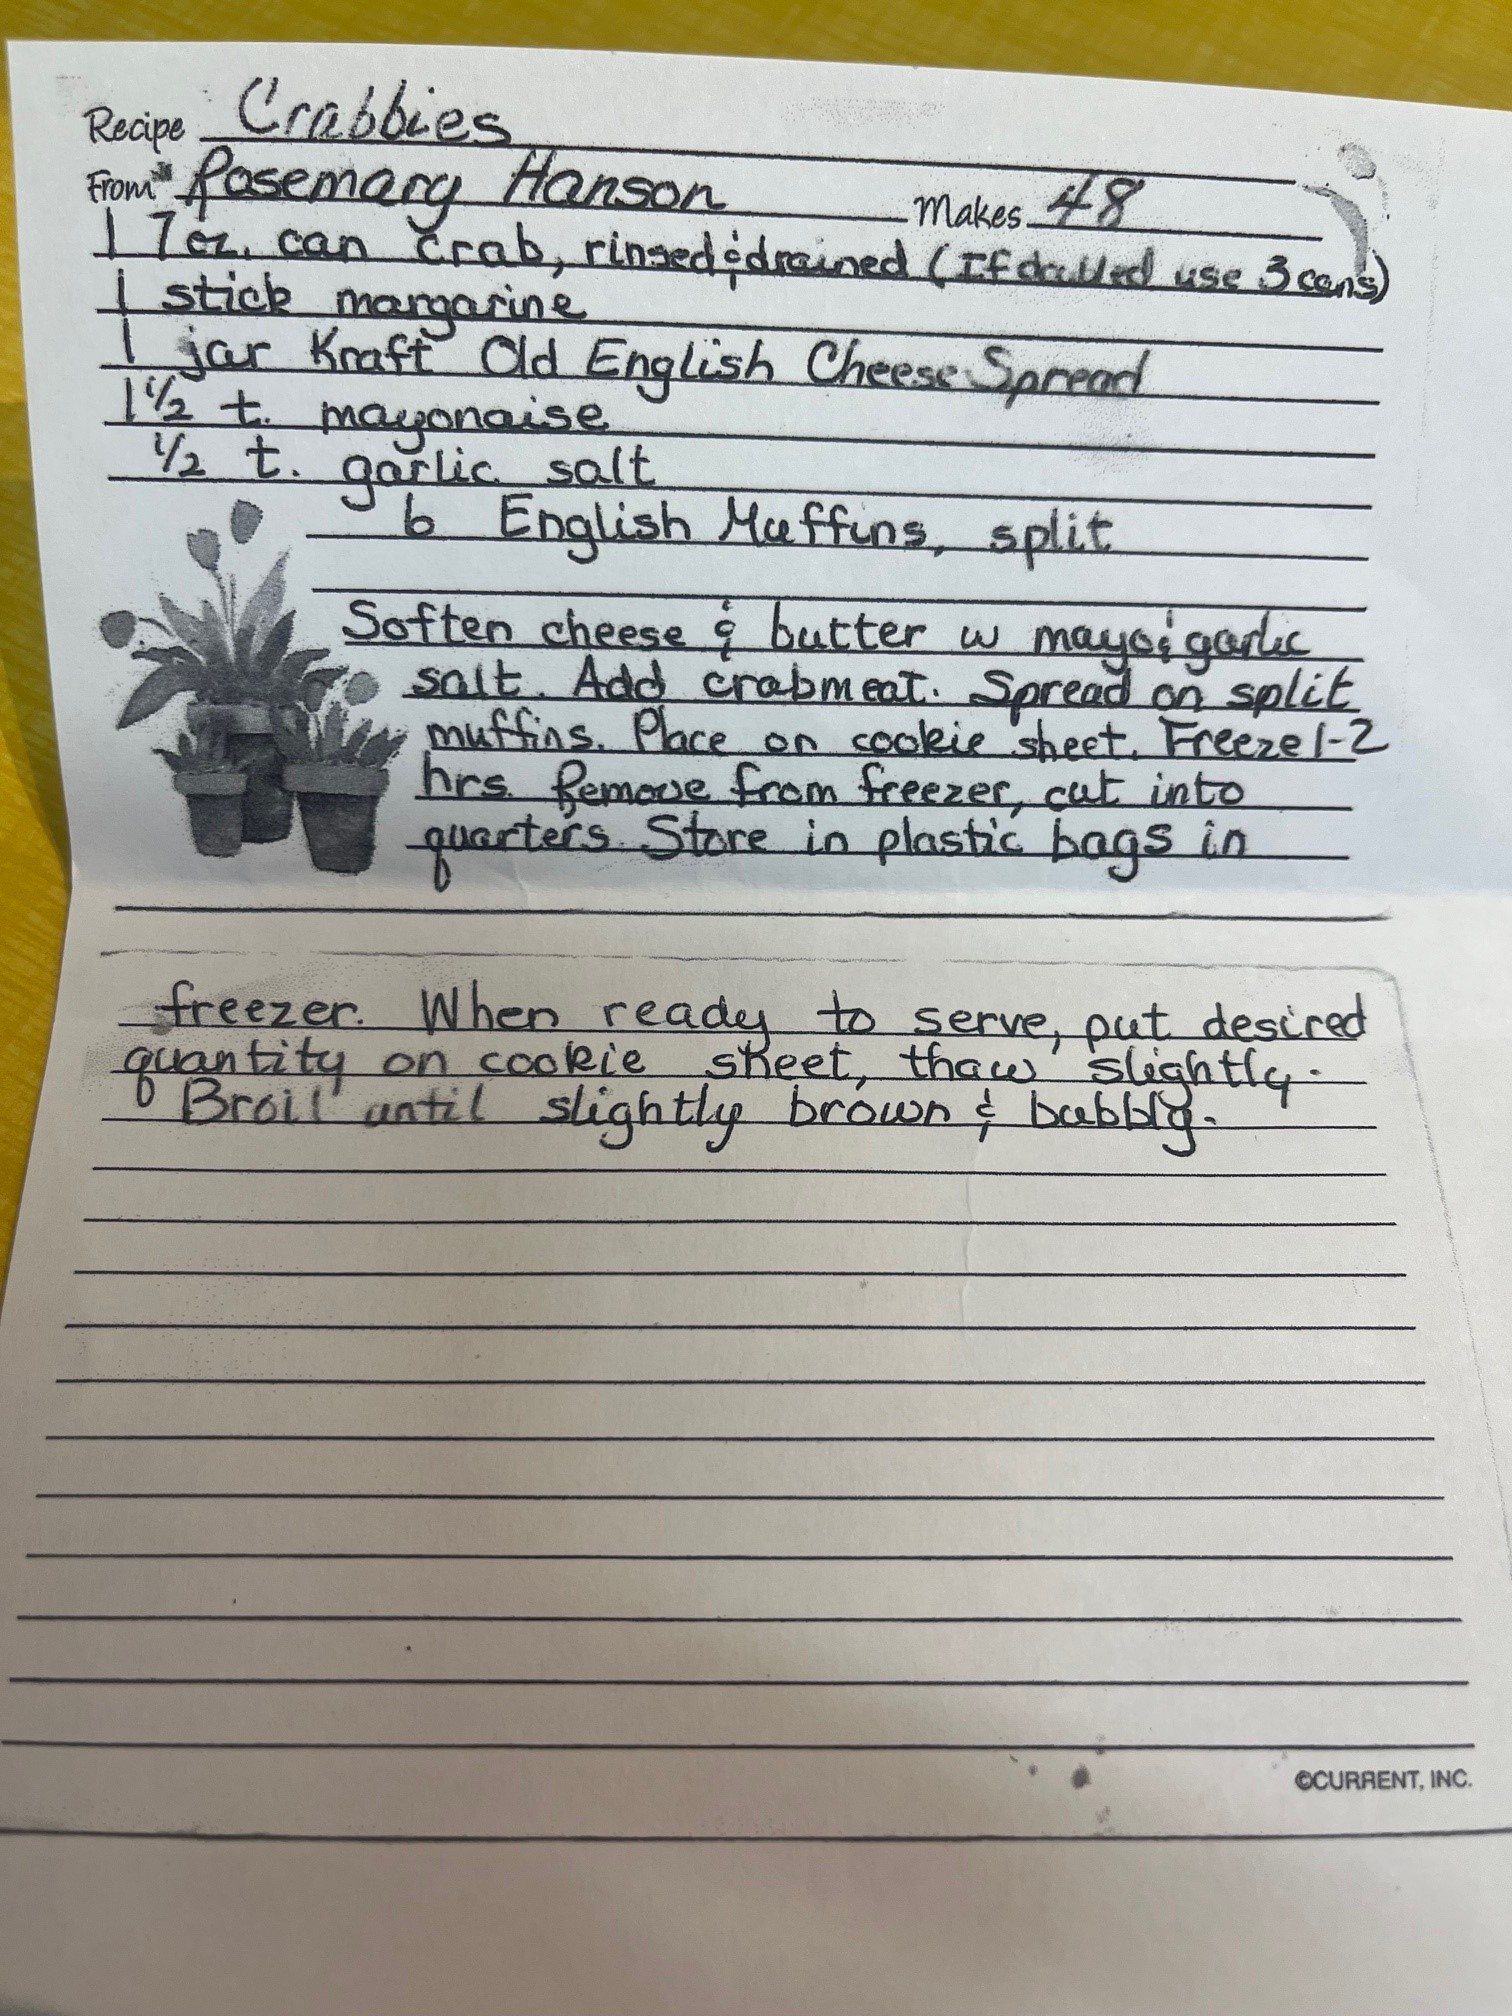 Recipe Crabbies
From Rosemary Hanson Makes 48
1 7 oz. can crab, rinsed & drained (If doubled use 3 cans)
1 stick margarine
1 jar Kraft Old English Cheese Spread
1 1/2 t. mayonaise
1/2 t. garlic salt
6 English Muffins, split
Soften cheese & butter w mayo & garlic
salt. Add crabmeat. Spread on split
muffins. Place on cookie sheet. Freeze 1-2
hrs. Remove from freezer, cut into
quarters. Store in plastic bags in
freezer. When ready to serve, put desired
quantity on cookie sheet, thaw slightly.
Broil until slightly brown & bubbly.
©CURRENT, INC.